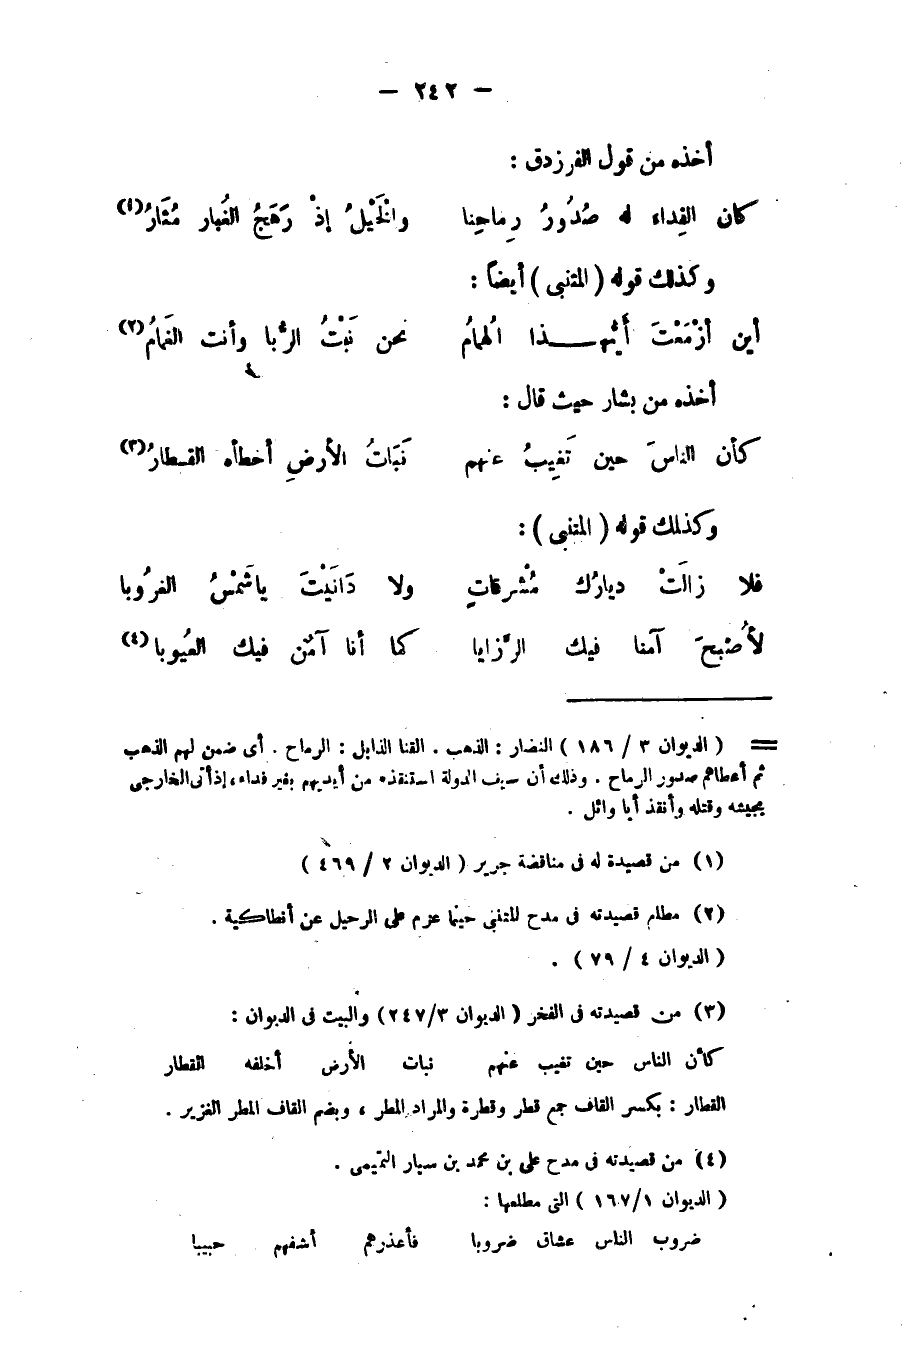 — ٢٤٢ —
أخذه من قول الفرزدق :
كان الفِداء له صُدُورُ رِماحِنا والخَيْلُ إذْ رَهَجُ الغُبار مُثَارُ(١)
وكذلك قوله ( المتنبى ) أيضاً :
أين أزْمَعْتَ أَيُّهـــــذا الهُمامُ نحن نَبْتُ الرُّبا وأنت الغَمامُ(٢)
أخذه من بشار حيث قال :
كأن الناسَ حين تَغِيبُ عنهم نَبَاتُ الأرضِ أخطأه القـطارُ(٣)
وكذلك قوله ( المتنبى ) :
فلا زالَتْ ديارُك مُشْرِقاتٍ ولا دَانَيْتَ ياشَمْسُ الغُروبا
لأُصْبِحَ آمنا فيك الرَّزايا كما أنا آمَنٌ فيك العُيوبا(٤)
= ( الديوان ٣ / ١٨٦ ) النضار : الذهب . القنا الذابل : الرماح . أى ضمن لهم الذهب
ثم أعطاهم صدور الرماح . وذلك أن سيف الدولة استنقذه من أيديهم بغير فداء، إذ أتى الخارجى
بجيشه وقتله وأنقذ أبا وائل .
(١) من قصيدة له فى مناقضة جرير ( الديوان ٢ / ٤٦٩ )
(٢) مطلع قصيدته فى مدح للمتنبى حينما عزم على الرحيل عن أنطاكية .
( الديوان ٤ / ٧٩ ) .
(٣) من قصيدته فى الفخر ( الديوان ٢٤٧/٣ ) والبيت فى الديوان :
كأن الناس حين تغيب عنهم نبات الأرض أخلفه القطار
القطار : بكسر القاف جمع قطر وقطرة والمراد المطر ، وبضم القاف المطر الغزير .
(٤) من قصيدته فى مدح على بن محمد بن سيار التميمى .
( الديوان ١٦٧/١ ) التى مطلعها :
ضروب الناس عشاق ضروبا فأعذرهم أشفهم حبيبا